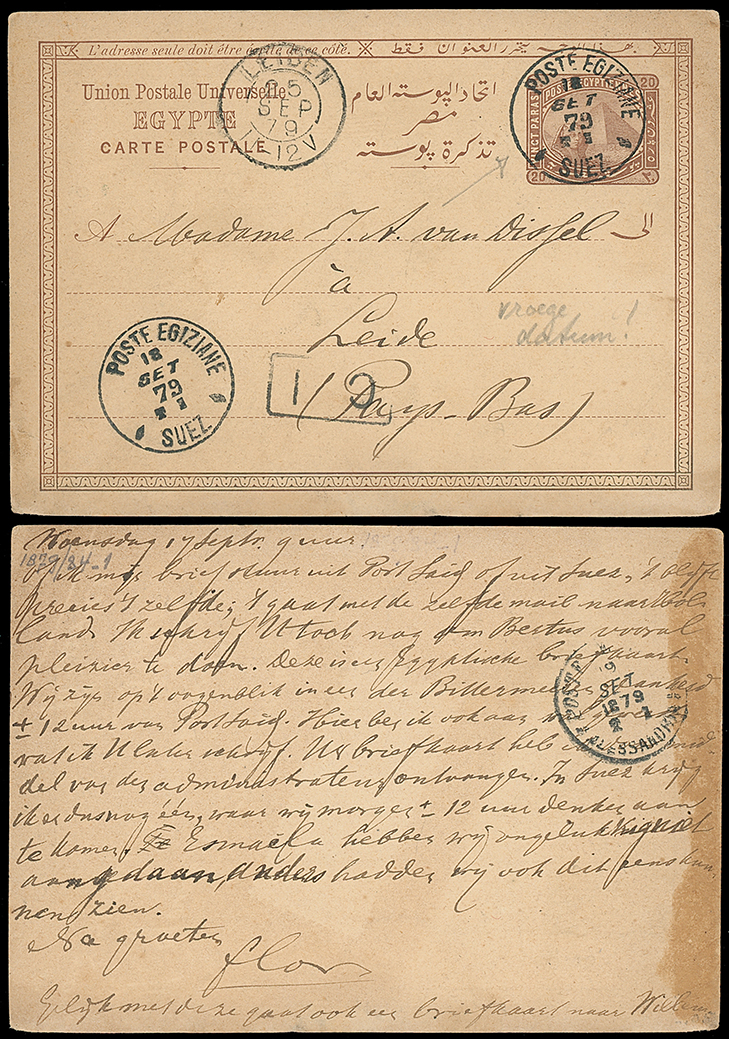 L'adresse seule doit être écrite de ce côté.
بهذا الوجه يتحرر العنوان فقط
Union Postale Universelle
EGYPTE
CARTE POSTALE
اتحاد البوسته العام
مصر
تذكرة بوسته
LEIDEN
25
SEP
79
12V
POSTE EGIZIANE
18
SET
79
SUEZ
20
VINGT PARAS
POSTES EGYPTIENNES
20
A Madame J. A. van Dissel
الى
à
Leide
(Pays-Bas)
vroege
datum!
POSTE EGIZIANE
18
SET
79
SUEZ
Woensdag 17 Septr. 9 uur.
1879/84-1
Of ik mijn brief stuur uit Port Said of uit Suez, 't blijft
precies 't zelfde; 't gaat met de zelfde mail naar Hol-
land. Ik schrijf U toch nog om Bertus vooral
pleizier te doen. Deze is een Egyptische briefkaart.
Wij zijn op 't oogenblik in een der Bittermeeren
± 12 uur van Port Said. Hier ben ik ook aan
wat ik U later schrijf. Uw briefkaart heb
del van den administrateur ontvangen. In Suez krijg
ik er dus nog één, waar wij morgen ± 12 uur denken aan
te komen. Esmaëlia hebben wij ongelukkig niet
aangedaan, anders hadden wij ook dit eens kun-
nen zien.
Na groeten
Flor
Gelijk met deze gaat ook een briefkaart naar Willem
POSTE
19
SET
1879
ALESSANDRIA